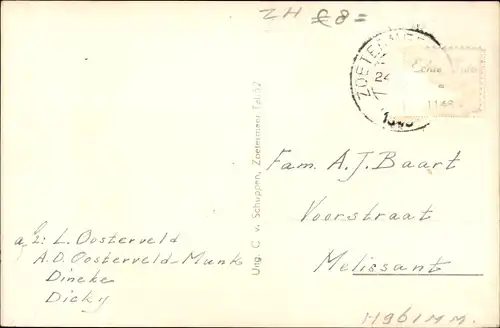 ZH £ 8=
ZOETERMEER
24
Echte Foto
1148
Uitg. C. v. Schuppen, Zoetermeer Tel. 32
Fam. A. J. Baart
Voorstraat
Melissant
L. Oosterveld
A.D. Oosterveld-Munk
Dineke
Dicky
H961MM.